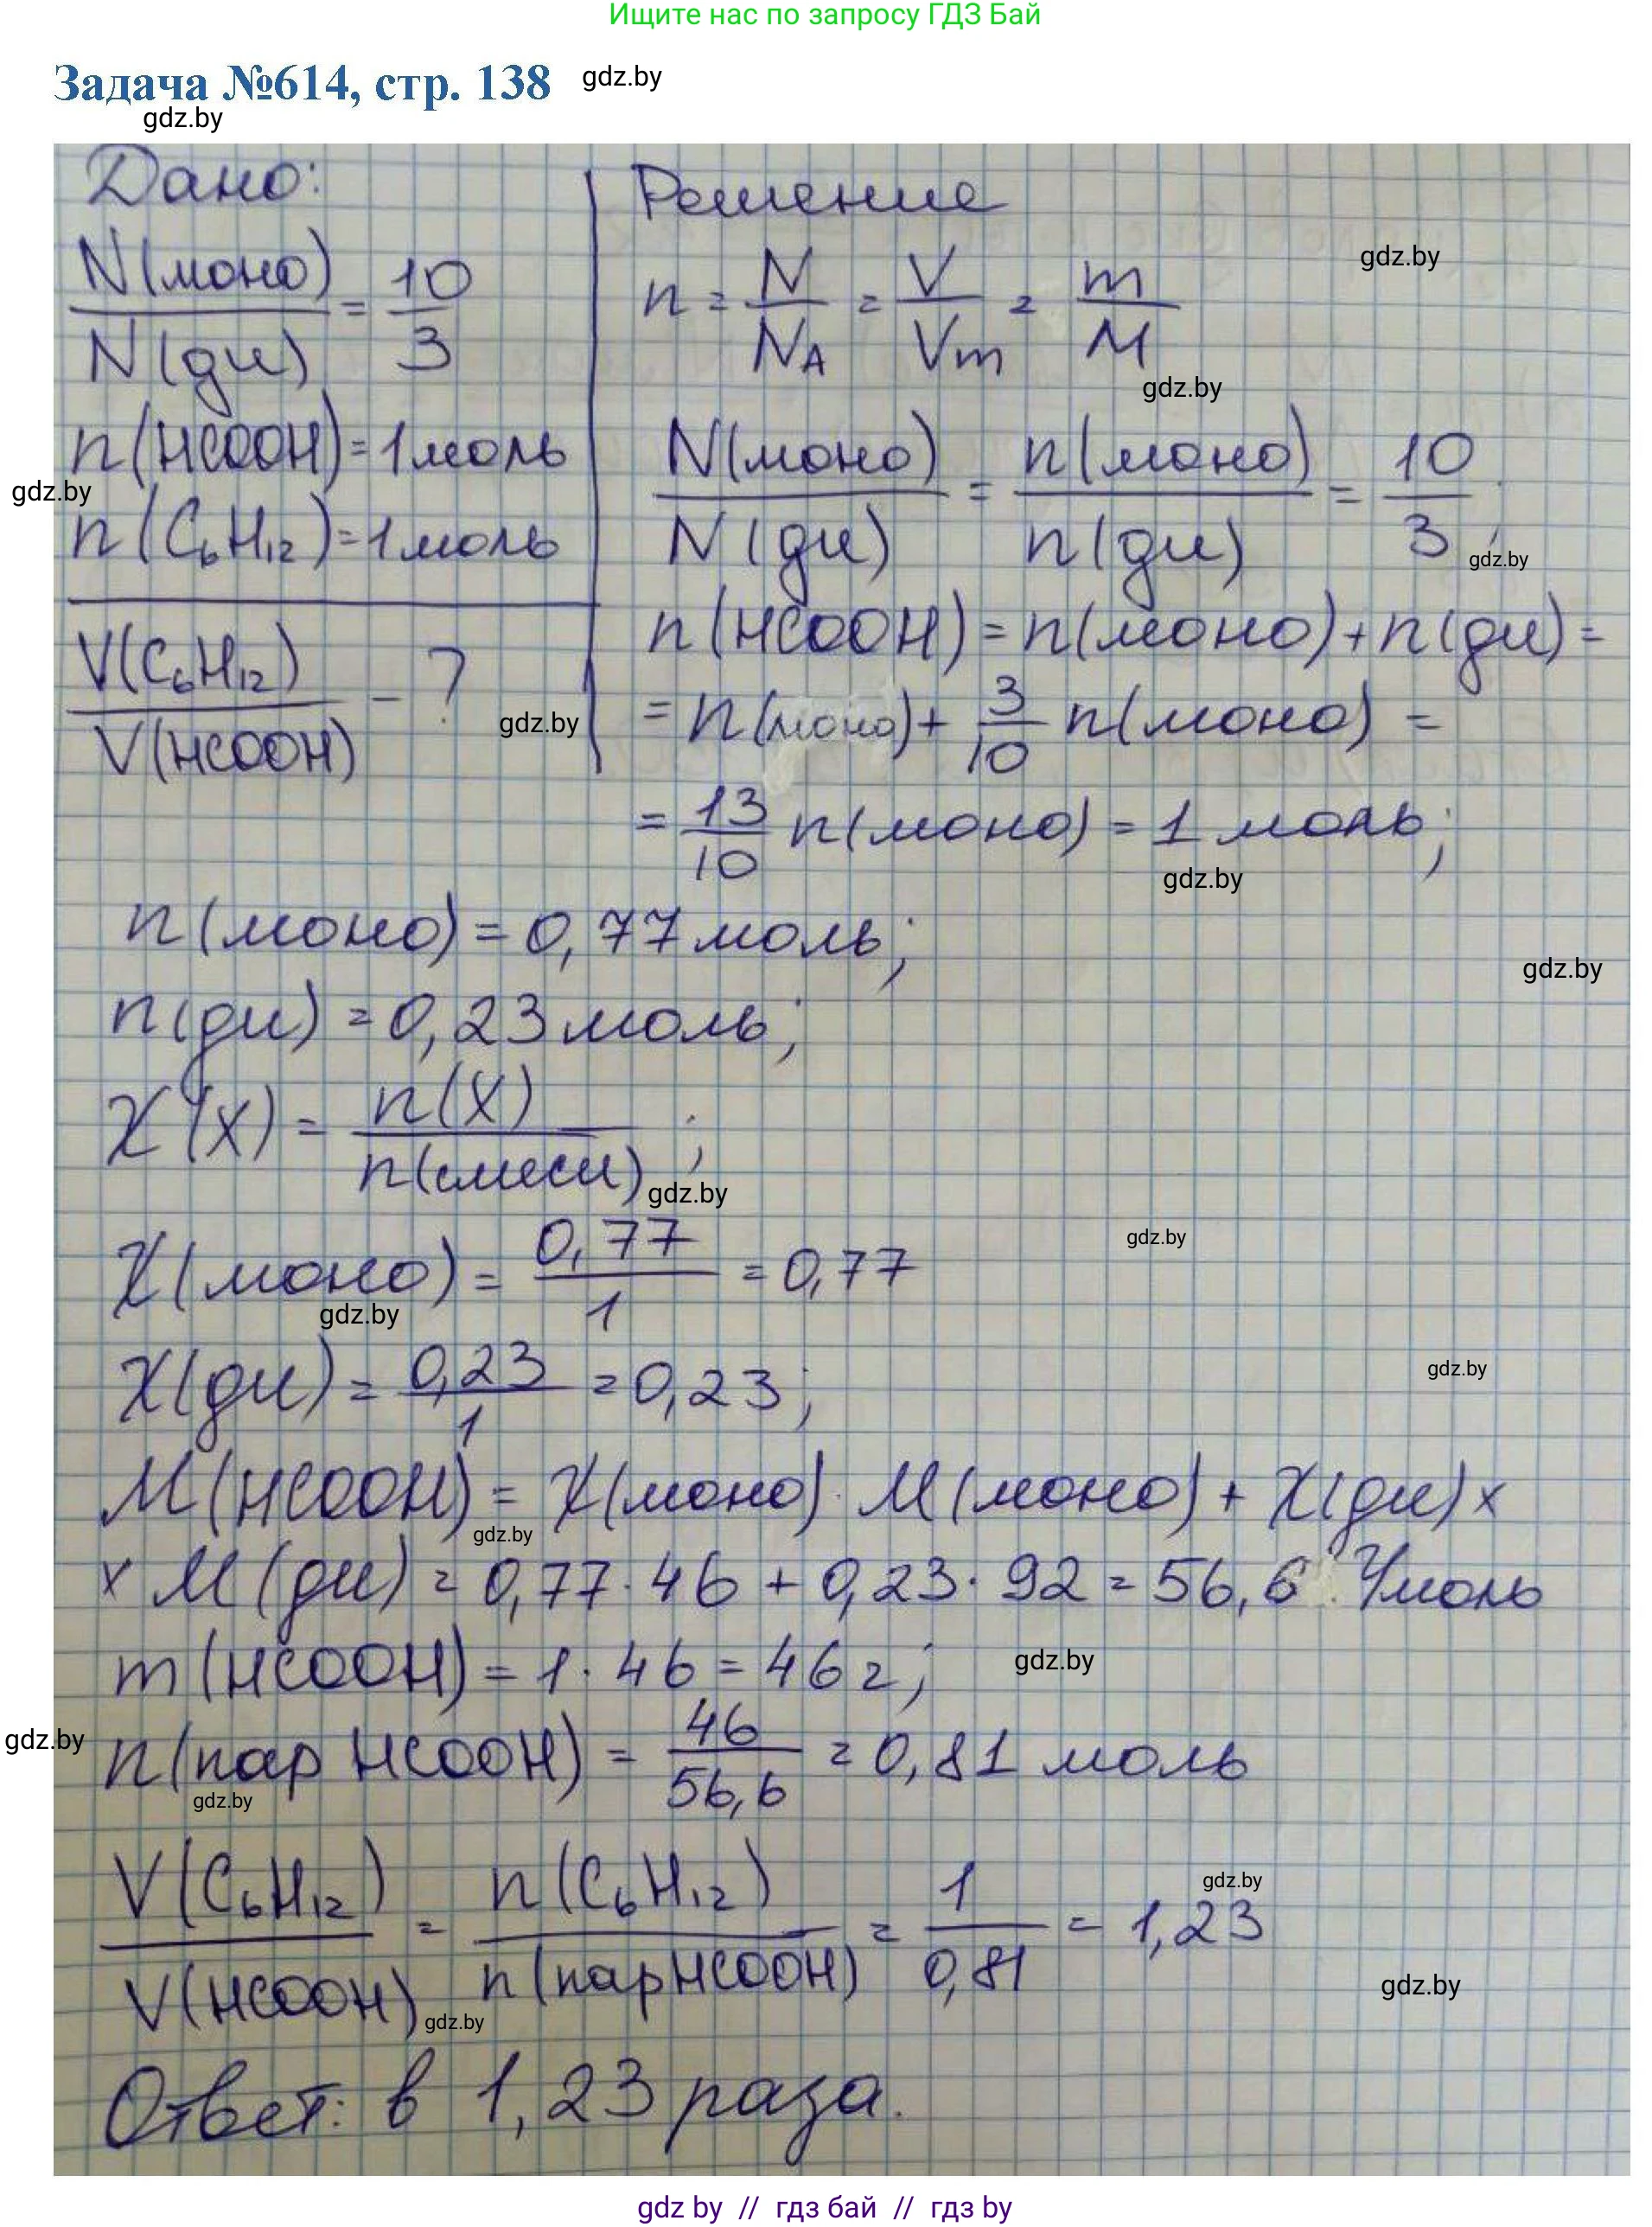 Ищите нас по запросу ГДЗ Бай
Задача №614, стр. 138 gdz.by
gdz.by
Дано:
N(моно) / N(ди) = 10 / 3
n(HCOOH) = 1 моль
gdz.by
n(C₆H₁₂) = 1 моль
V(C₆H₁₂) / V(HCOOH) - ?
gdz.by
Решение
gdz.by
n = N / N_A = V / Vm = m / M
gdz.by
N(моно) / N(ди) = n(моно) / n(ди) = 10 / 3 ;
gdz.by
n(HCOOH) = n(моно) + n(ди) =
= n(моно) + 3/10 n(моно) =
= 13/10 n(моно) = 1 моль;
gdz.by
n(моно) = 0,77 моль;
gdz.by
n(ди) = 0,23 моль;
χ(X) = n(X) / n(смеси) ;
gdz.by
gdz.by
χ(моно) = 0,77 / 1 = 0,77
gdz.by
χ(ди) = 0,23 / 1 = 0,23;
gdz.by
M(HCOOH) = χ(моно) · M(моно) + χ(ди) ×
gdz.by
× M(ди) = 0,77 · 46 + 0,23 · 92 = 56,6 г/моль
m(HCOOH) = 1 · 46 = 46 г;
gdz.by
gdz.by
n(пар HCOOH) = 46 / 56,6 = 0,81 моль
gdz.by
V(C₆H₁₂) / V(HCOOH) = n(C₆H₁₂) / n(пар HCOOH) = 1 / 0,81 = 1,23
gdz.by
gdz.by
gdz.by
Ответ: в 1,23 раза.
gdz by // гдз бай // гдз by